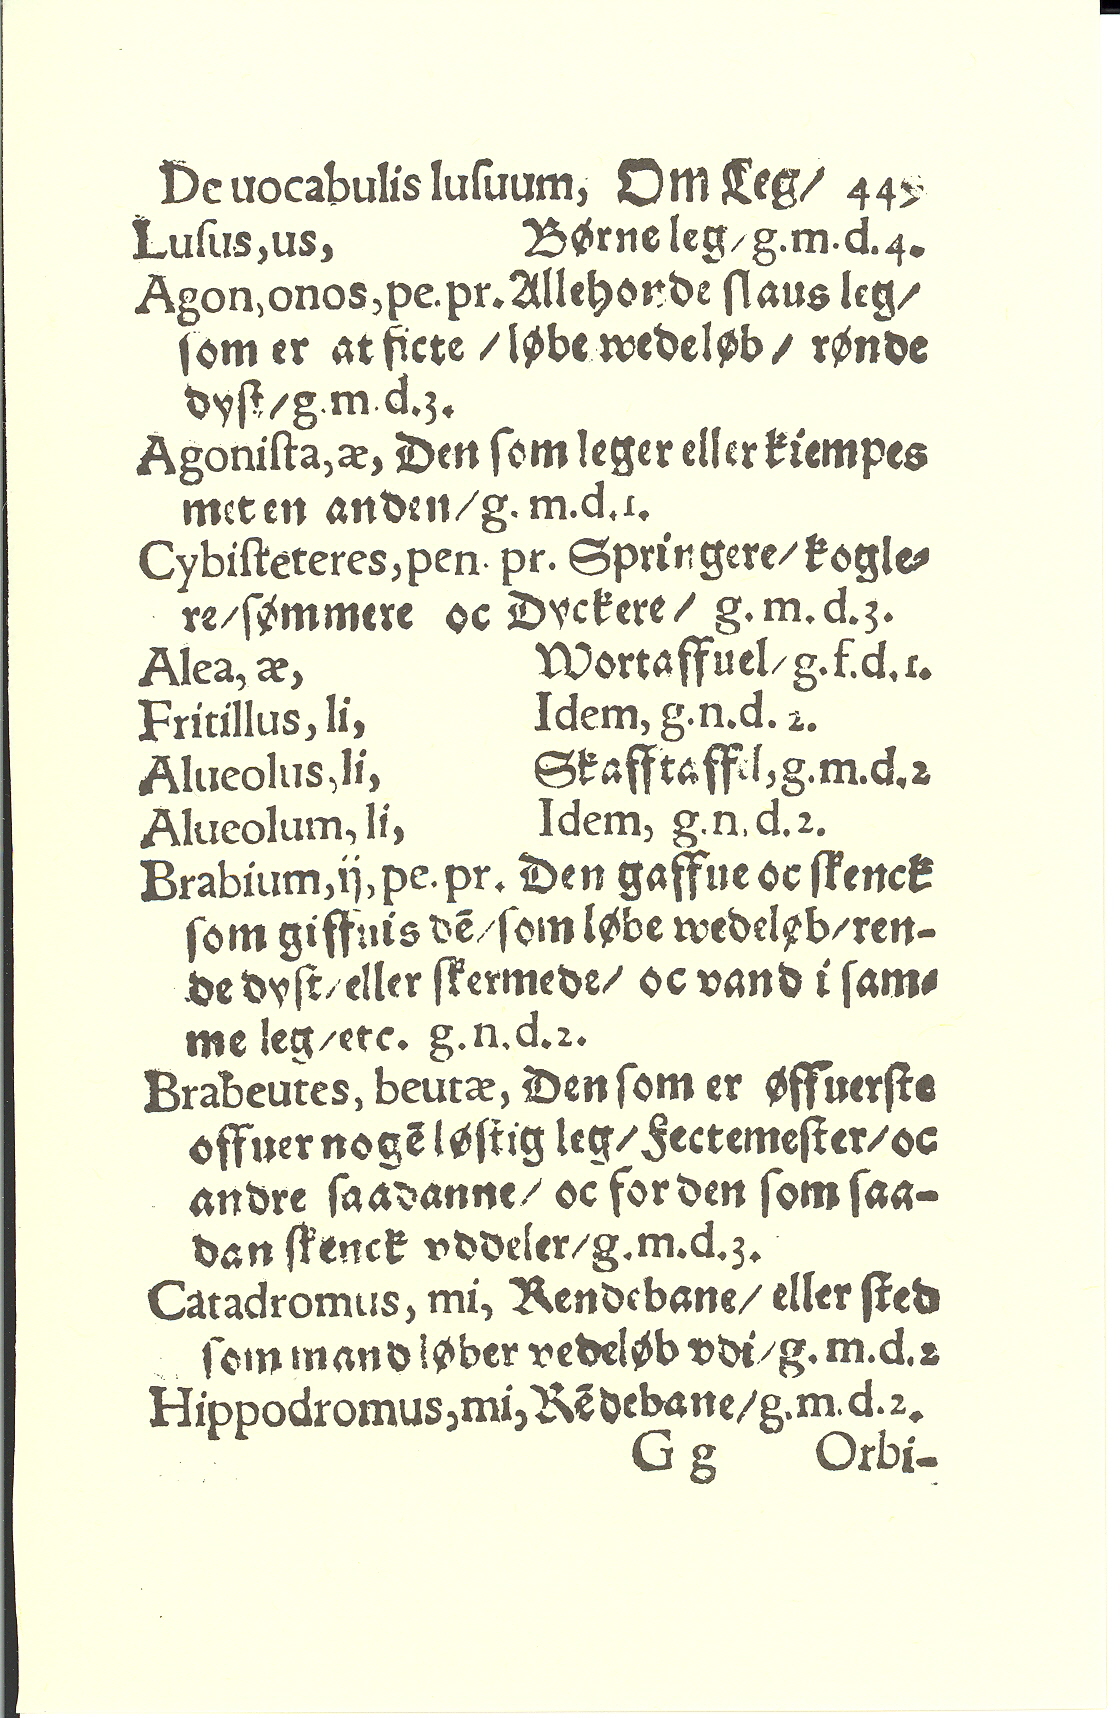 De uocabulis luſuum, Om Leg/ 445
Luſus,us, Børne leg/g.m.d.4.
Agon,onos,pe.pr. Allehonde ſlaus leg/
ſom er at ficte /løbe wedeløb/ rønde
dyſt/g.m.d.3.
Agoniſta,æ, Den ſom leger eller kiempes
met en anden/g. m.d.1.
Cybiſteteres,pen. pr. Springere/kogle-
re/ſømmere oc Dyckere/ g. m. d.3.
Alea, æ, Wortaffuel/g.f.d.1.
Fritillus, li, Idem, g.n.d. 2.
Alueolus,li, Skafftaffel,g.m.d.2
Alueolum, li, Idem, g.n.d.2.
Brabium,ij,pe.pr. Den gaffue oc ſkenck
ſom giffuis dē/ſom løbe wedeløb/ren-
de dyſt/eller ſkermede/ oc vand i ſam-
me leg/etc. g.n.d.2.
Brabeutes, beutæ, Den ſom er øffuerſte
offuer nogē løſtig leg/Fectemeſter/oc
andre ſaadanne/ oc for den ſom ſaa-
dan ſkenck vddeler/g.m.d.3.
Catadromus, mi, Rendebane/ eller ſted
ſom mand løber vedeløb vdi/g.m.d.2
Hippodromus,mi,Rēdebane/g.m.d.2.
G g Orbi-